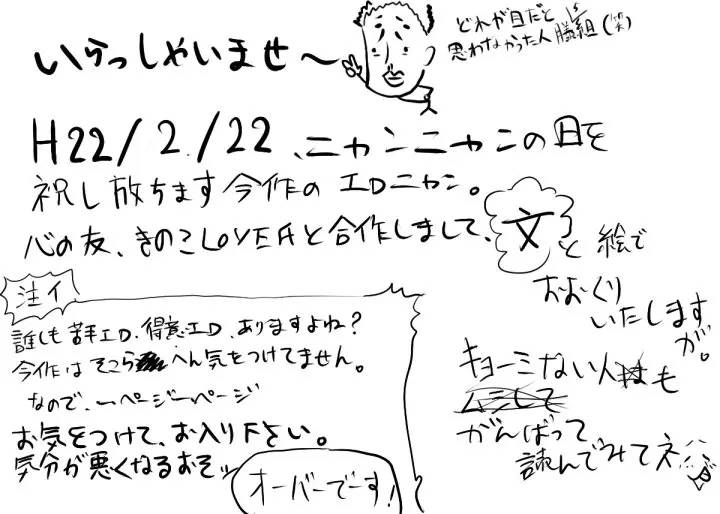 いらっしゃいませ〜
どれが目だと
思わなかった人勝組(笑)
H22/2/22、ニャンニャンの日を
祝し放ちます今作のエロニャン。
心の友、きのこLOVERと合作しまして、文と絵で
おおくり
いたします
が。
キョーミない人も
がんばって
読んでみてネ
注イ
誰しも苦手エロ、得意エロ、ありますよね?
今作はそこらへん気をつけてません。
なので、一ページ一ページ
お気をつけて、お入り下さい。
気分が悪くなるおそッ
オーバーでーす!